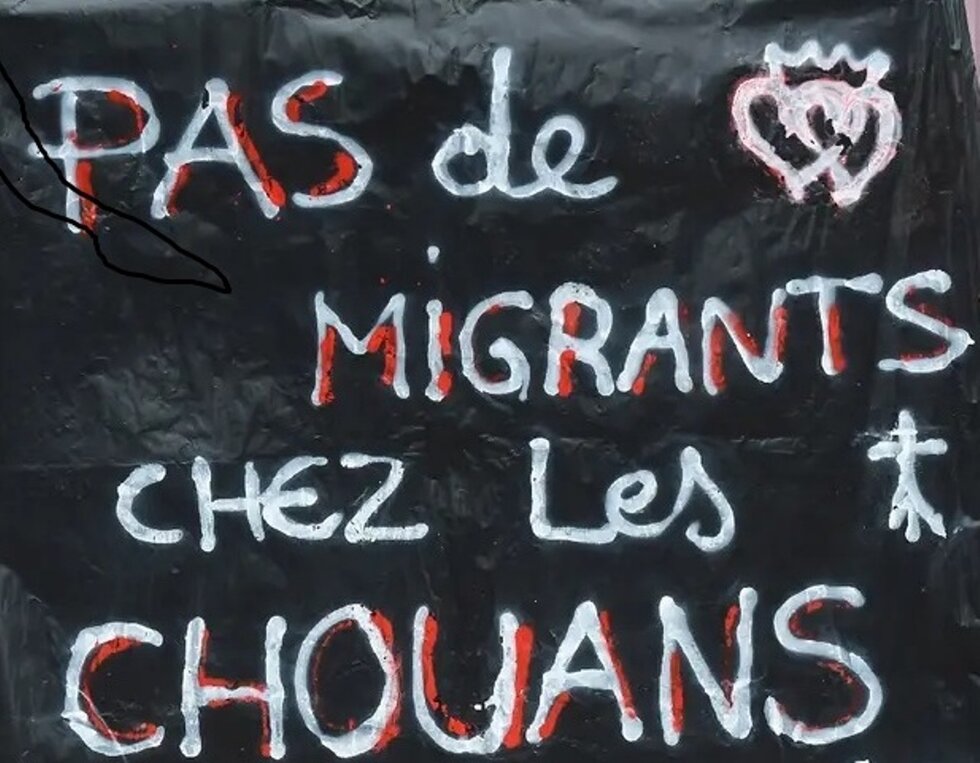 PAS de
MiGRANTS
CHEZ Les
CHOUANS